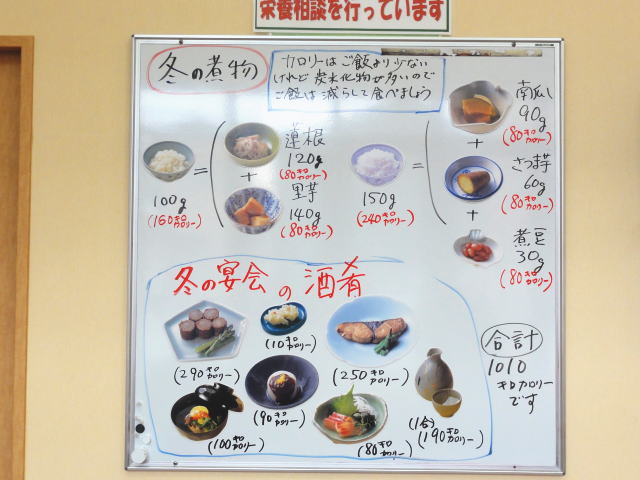 栄養相談を行っています
冬の煮物
カロリーはご飯より少ない
けれど炭水化物が多いので
ご飯は減らして食べましょう
100g
(160キロカロリー)
=
蓮根
120g
(80キロカロリー)
+
里芋
140g
(80キロカロリー)
150g
(240キロカロリー)
=
南瓜
90g
(80キロカロリー)
+
さつま芋
60g
(80キロカロリー)
+
煮豆
30g
(80キロカロリー)
冬の宴会の酒肴
(290キロカロリー)
(10キロカロリー)
(250キロカロリー)
(100キロカロリー)
(90キロカロリー)
(80キロカロリー)
(1合)
(190キロカロリー)
合計
1010
キロカロリー
です